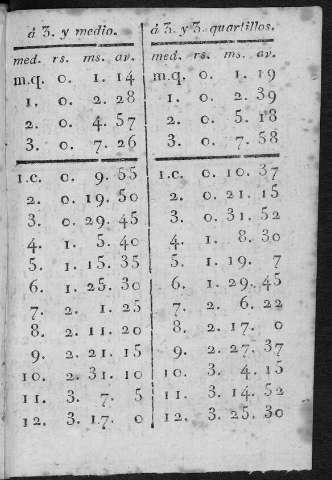 á 3. y medio.
med. rs. ms. av.
m.q. 0. 1. 14
1. 0. 2. 28
2. 0. 4. 57
3. 0. 7. 26
1.c. 0. 9. 55
2. 0. 19. 50
3. 0. 29. 45
4. 1. 5. 40
5. 1. 15. 35
6. 1. 25. 30
7. 2. 1. 25
8. 2. 11. 20
9. 2. 21. 15
10. 2. 31. 10
11. 3. 7. 5
12. 3. 17. 0
á 3. y 3. quartillos.
med. rs. ms. av.
m.q. 0. 1. 19
1. 0. 2. 39
2. 0. 5. 18
3. 0. 7. 58
1.c. 0. 10. 37
2. 0. 21. 15
3. 0. 31. 52
4. 1. 8. 30
5. 1. 19. 7
6. 1. 29. 45
7. 2. 6. 22
8. 2. 17. 0
9. 2. 27. 37
10. 3. 4. 15
11. 3. 14. 52
12. 3. 25. 30